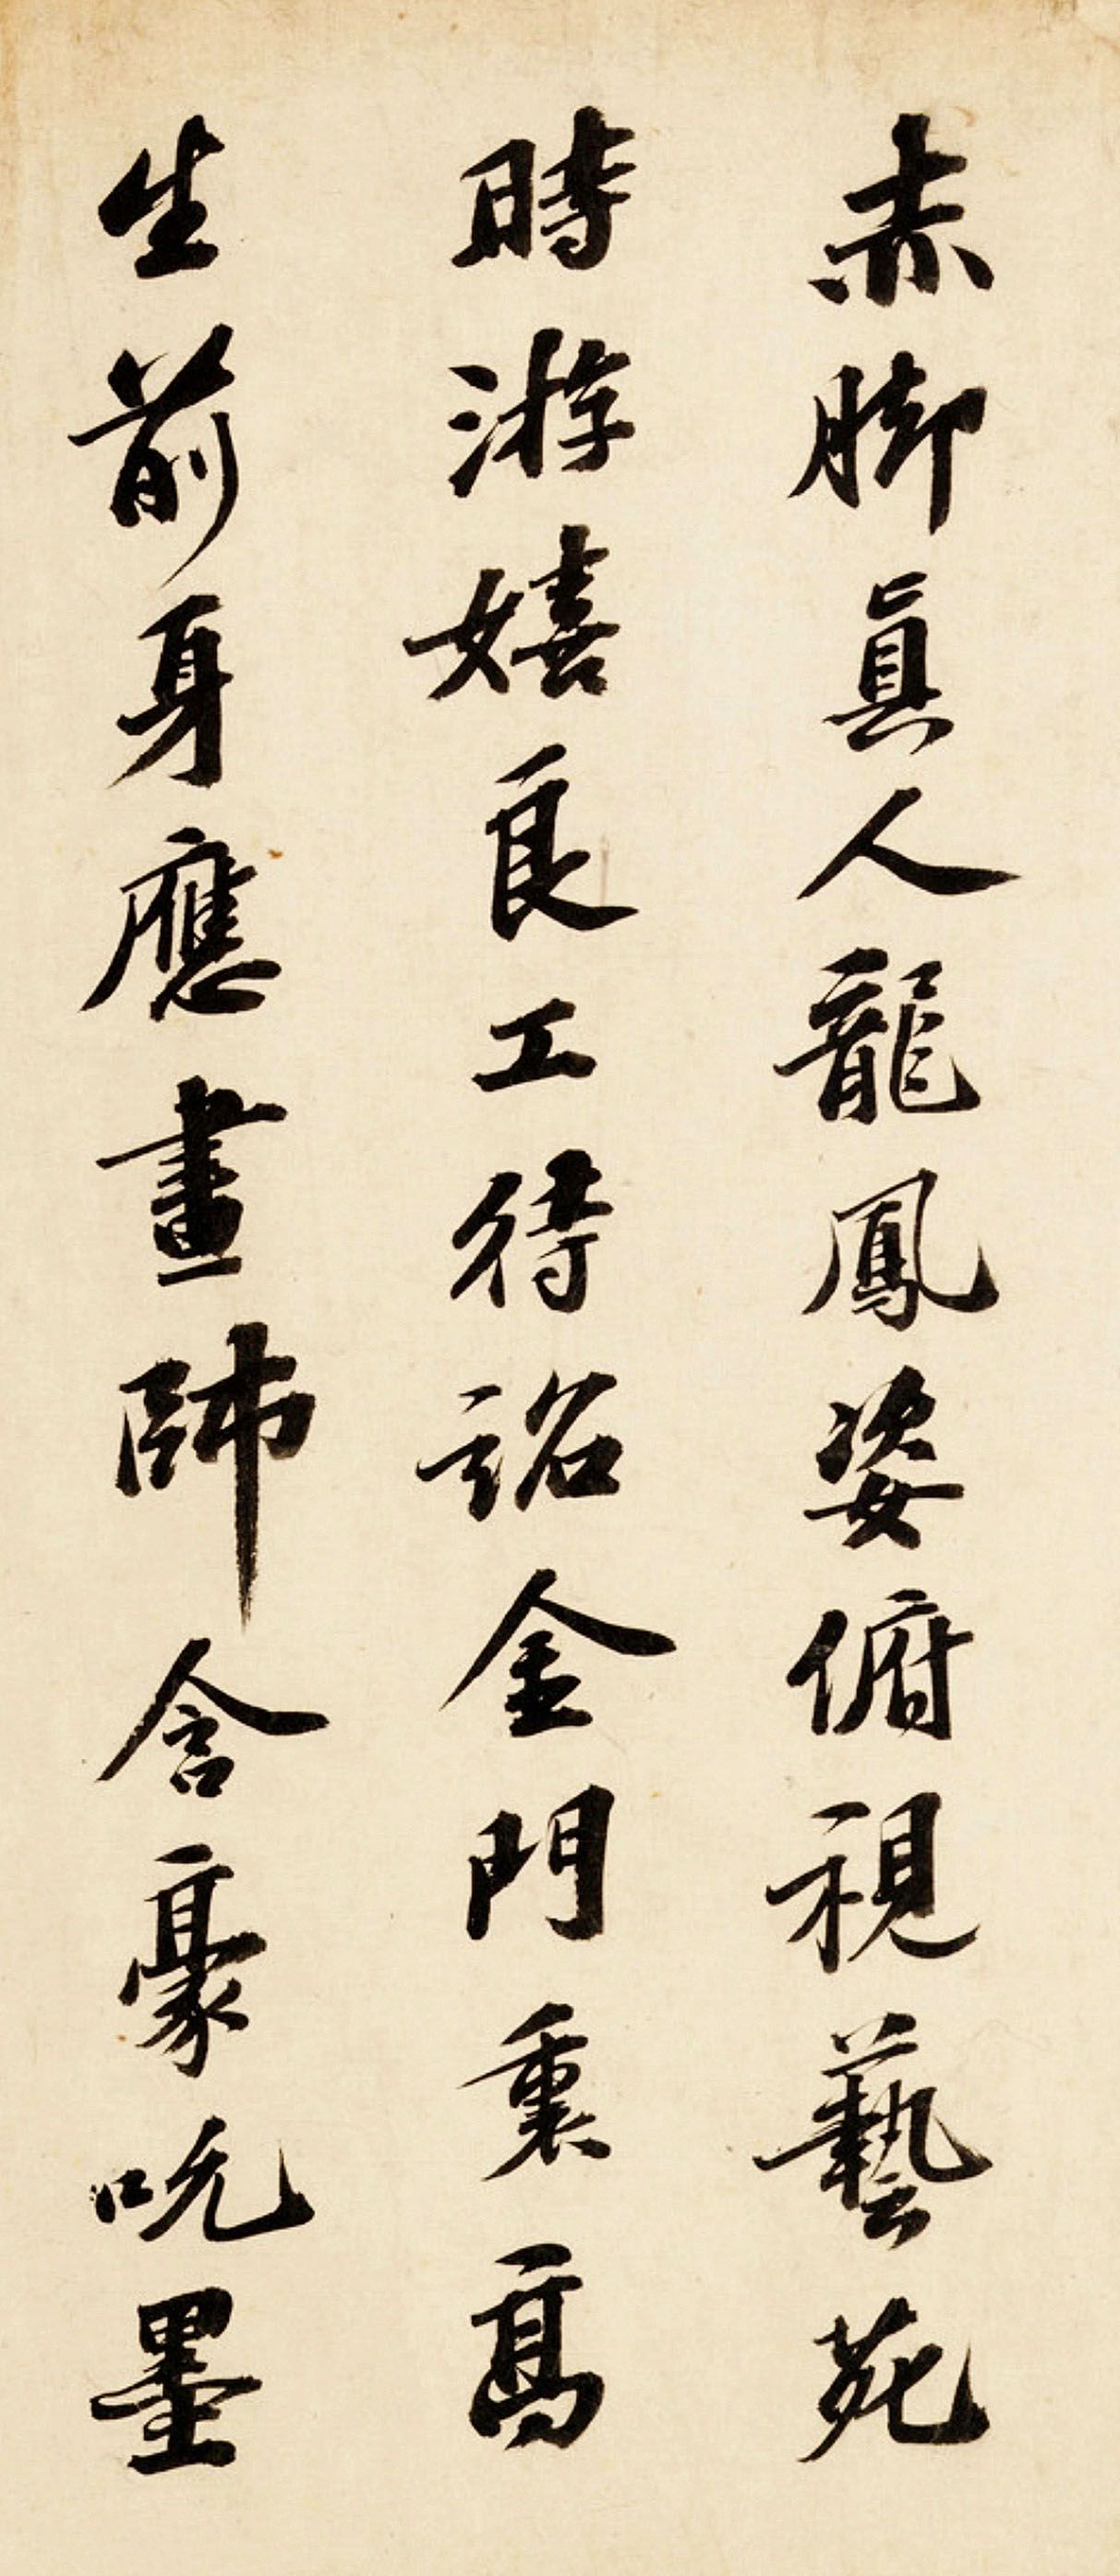 赤脚真人龍鳳姿俯視藝苑
時游嬉良工待詔金門裏高
生前身應畫師含豪吮墨